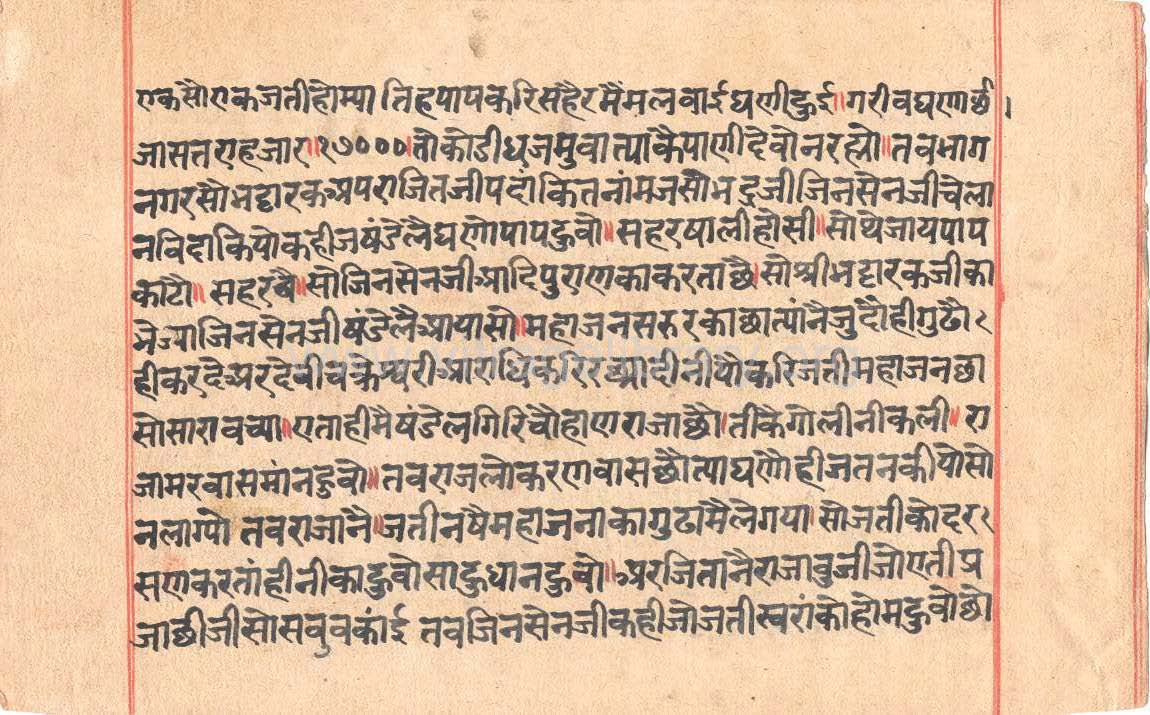 एकसौएकजतीहोम्या तिहपापकरिसहैरमैंमलवाईघणीहुई॥गरीवघणाछै।
जासत्तराहजार॥१७०००।तौकोडीधजमुवात्यांकैपाणीदेवौनरह्यो॥तवभाग
नगरसौभट्टारकअपराजितजीपदांकितनांमजसौभद्रजीजिनसेनजीचेला
नविदाकियोकहीजषंडेलैघणोपापहुवो॥सहरषालीहोसी॥सोथेजायपाप
काटौ॥ सहरवचै॥सोजिनसेनजीआदिपुराणकाकरताछै।सोश्रीभट्टारकजीका
भेज्याजिनसेनजीषंडेलैआयासो॥महाजनसहरकाछात्यांनैजुदौहीगुढौर
हीकरदेअरदेवीचक्रेश्वरीआराधिकरिरक्षादीनीयोकरिजैनीमहाजनछा
सोसारावच्या॥एताहीमैषंडेलगिरिचौहाणराजाछौ।तीकैगोलीनीकली॥ रा
जामरवासमांनहुवो॥तवराजलोकरणवासछौत्याघणौहीजतनकीयोसो
नलाग्यो तवराजांनै॥जतीनषैमहाजनाकागुढामैलेगया।सोजतीकोदरर
सणकरतांहीनीकाहुवोसाहुधानहुवो॥अरजितांनैराजावुजीजोएतीप्र
जाछीजीसोसववुवकांई तवजिनसेनजीकहीजोजतीस्वरांकोहोमहुवोछो
www.vitragelibrary.org